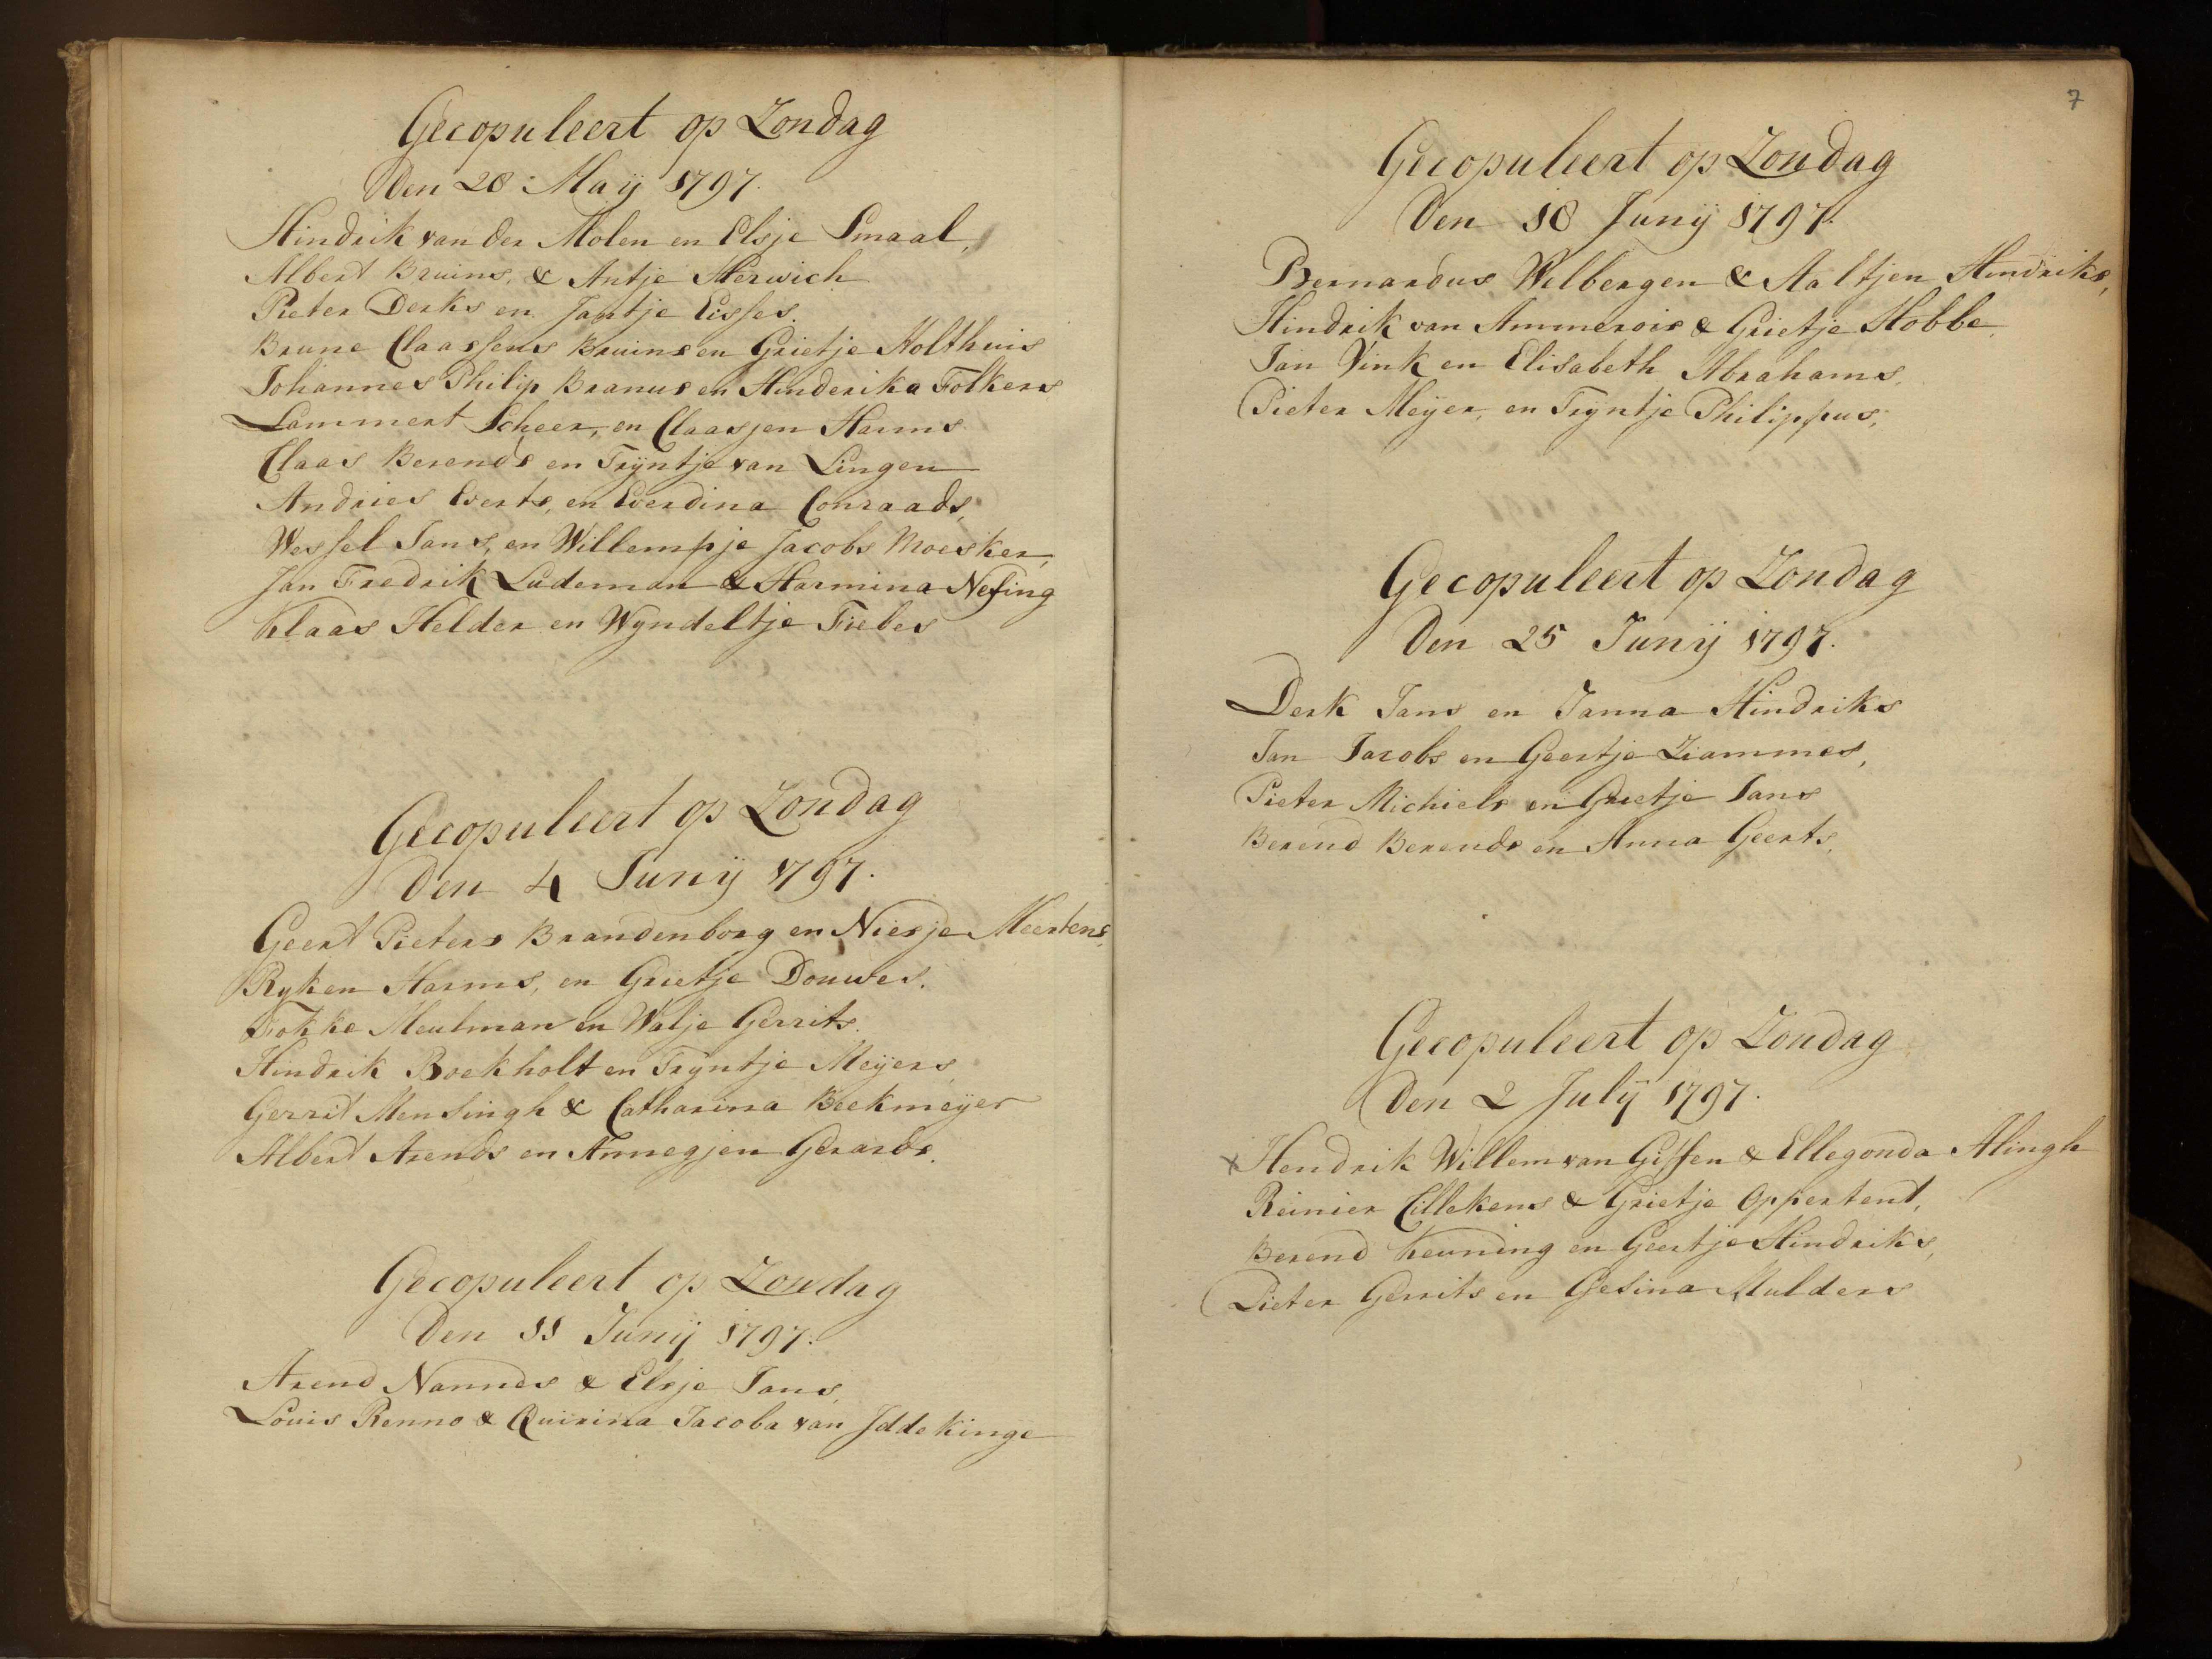 Gecopuleert op Zondag
Den 28 Maÿ 1797.
Hindrik van der Molen en Elsje Smaal,
Albert Bruins, & Antje Herwich
Pieter Derks en Jantje Eisses.
Brune Claassens Bruins en Grietje Holthuis
Johannes Philip Branus en Hinderika Folkers
Lammert Scheer, en Claasjen Harms
Claas Berends en Trÿntje van Lingen
Andries Everts, en Everdina Conraads,
Wessel Jans, en Willempje Jacobs Moesker,
Jan Fredrik Ludeman & Harmina Nefing
Klaas Helder en Wyndeltje Fiebes
Gecopuleert op Zondag
Den 4 Junÿ 1797.
Geert Pieters Brandenborg en Niesje Meertens,
Ryken Harms, en Grietje Douwes.
Fokke Meulman en Watje Gerrits.
Hindrik Boekholt en Tryntje Meÿers,
Gerrit Mensingh & Catharina Beekmeÿer
Albert Arends en Annegjen Gerards.
Gecopuleert op Zondag
Den 11 Junÿ 1797.
Arend Nannes & Elsje Jans,
Louis Renno & Quirina Jacoba van Iddekinge
7
Gecopuleert op Zondag
Den 18 Junÿ 1797.
Bernardus Welbergen & Aaltjen Hindriks,
Hindrik van Ammerois & Grietje Hobbe,
Jan Vink en Elisabeth Abrahams,
Pieter Meÿer, en Trÿntje Philippus,
Gecopuleert op Zondag
Den 25 Junÿ 1797.
Derk Jans en Janna Hindriks
Jan Jacobs en Geertje Ziammes,
Pieter Michiels en Grietje Jans
Berend Berends en Anna Geerts,
Gecopuleert op Zondag
Den 2 Julÿ 1797.
x Hendrik Willem van Giffen & Ellegonda Alingh
Reinier Cillekens & Grietje Oppertent,
Berend Keuning en Geertje Hindriks,
Pieter Gerrits en Gesina Mulders